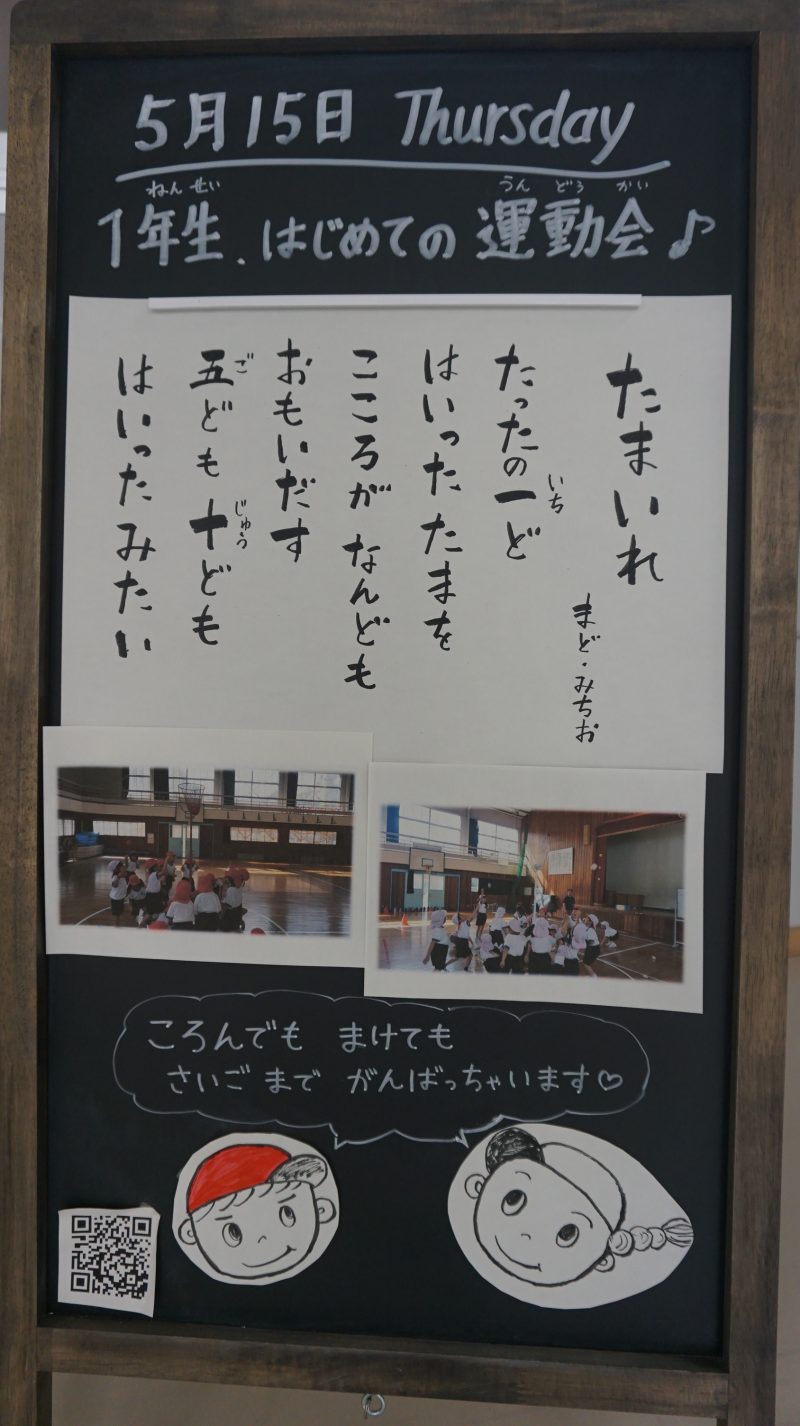 5月15日 Thursday
ねん せい うん どう かい
1年生、はじめての運動会♪
たまいれ
まど・みちお
いち
たったの一ど
はいった たまを
こころが なんども
おもいだす
ご じゅう
五ども 十ども
はいった みたい
ころんでも まけても
さいごまで がんばっちゃいます♡